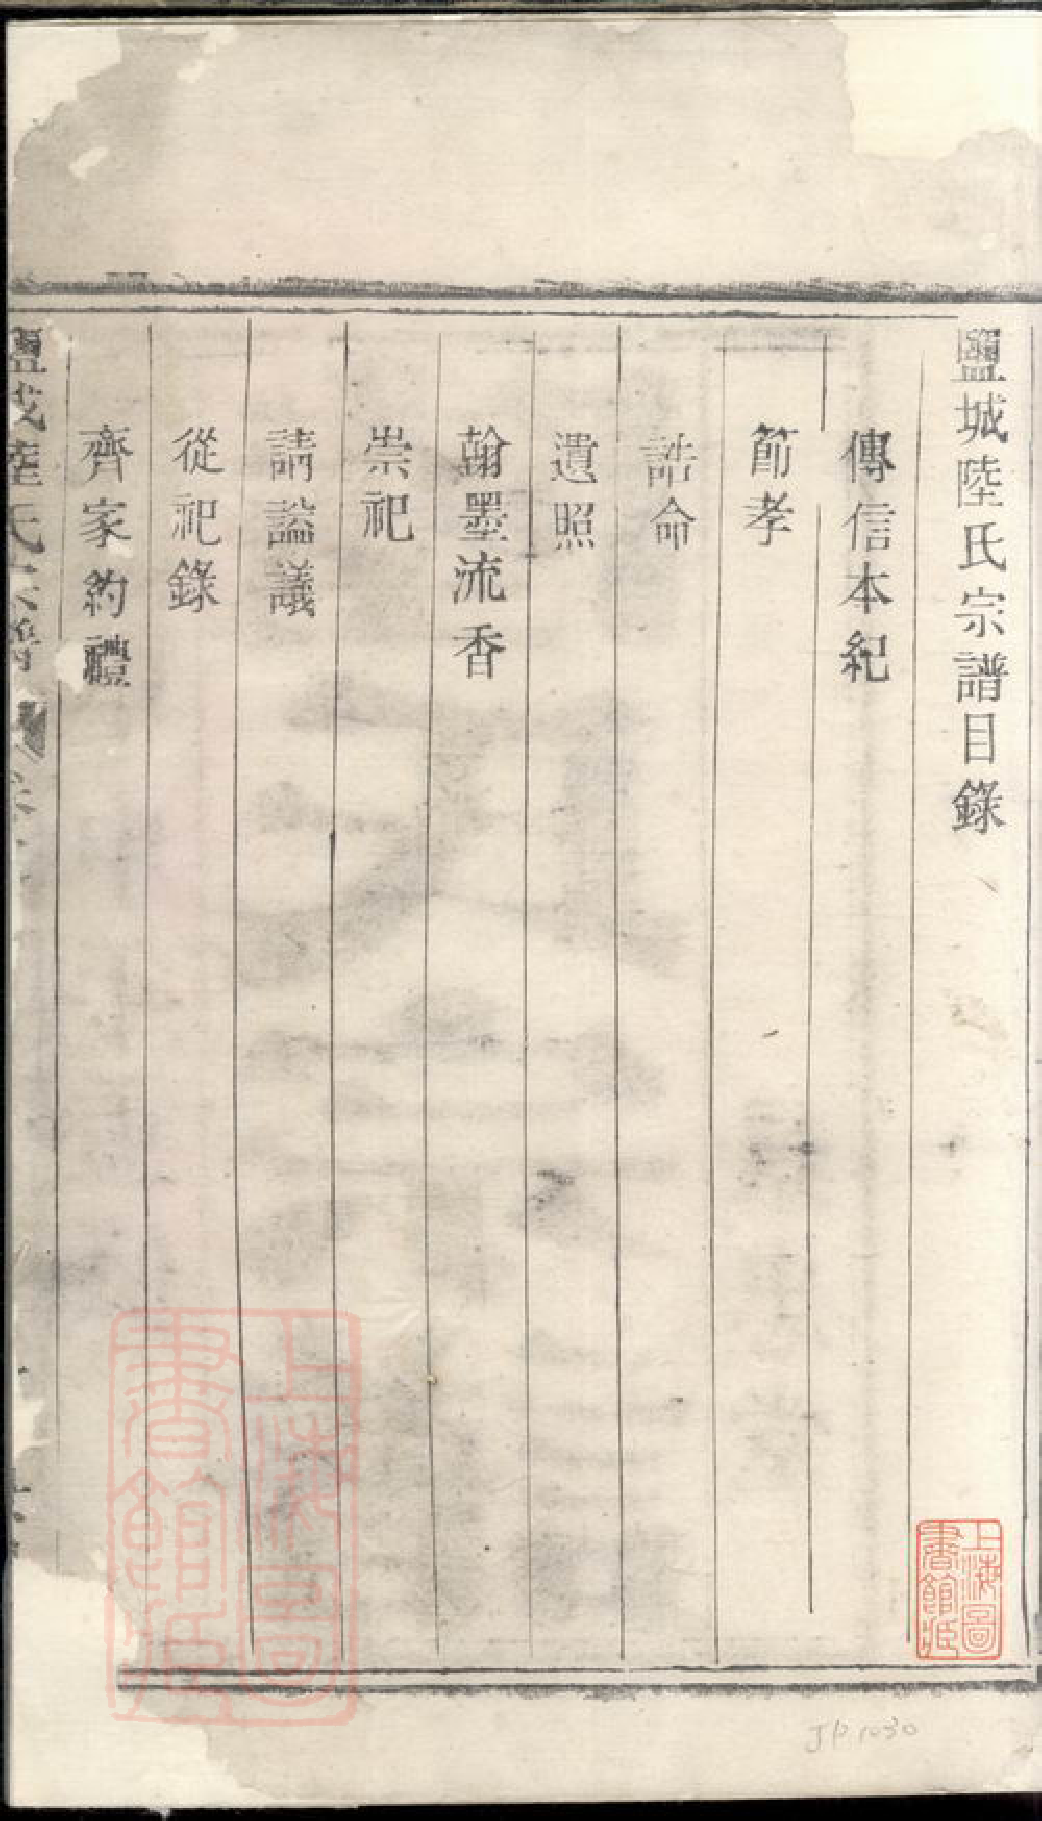 鹽城陸氏宗譜目錄
傳信本紀
節孝
誥命
遺照
翰墨流香
崇祀
請謚議
從祀錄
齊家約禮
鹽城陸氏宗譜
上海圖書館藏
上海圖書館藏
JP1030